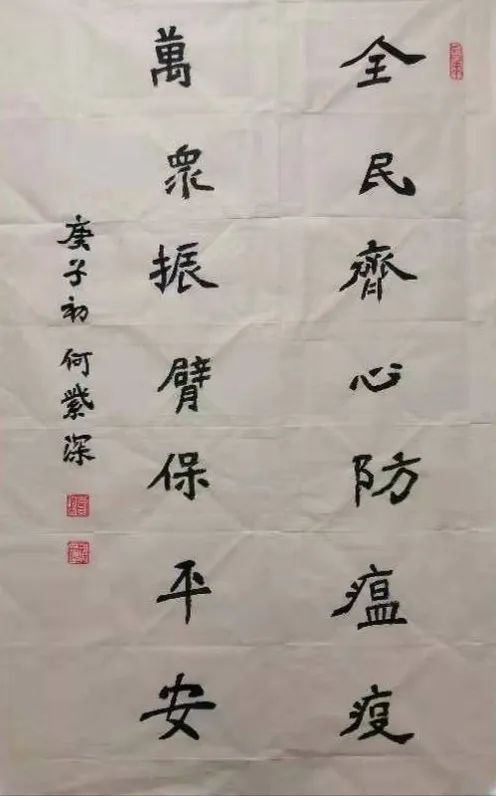 全民齊心防瘟疫
萬衆振臂保平安
庚子初何紫深